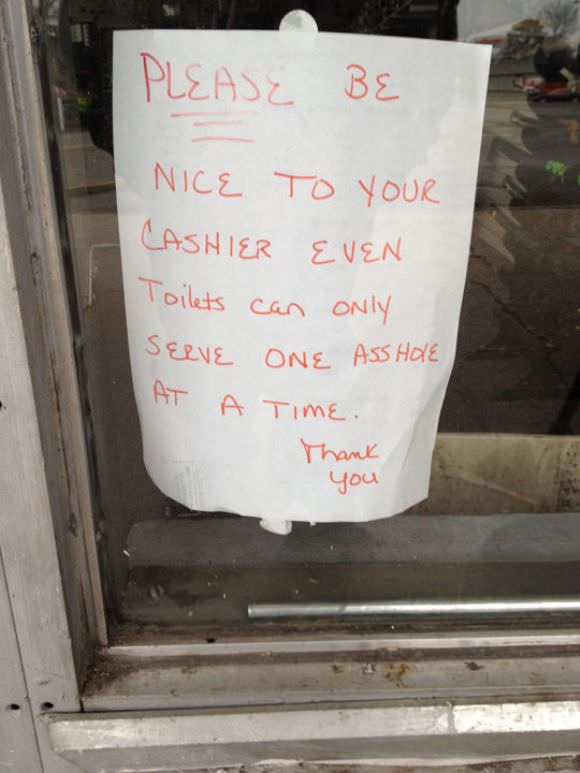 PLEASE BE
NICE TO YOUR
CASHIER EVEN
Toilets can ONly
SERVE ONE ASSHOLE
AT A TIME.
Thank
you